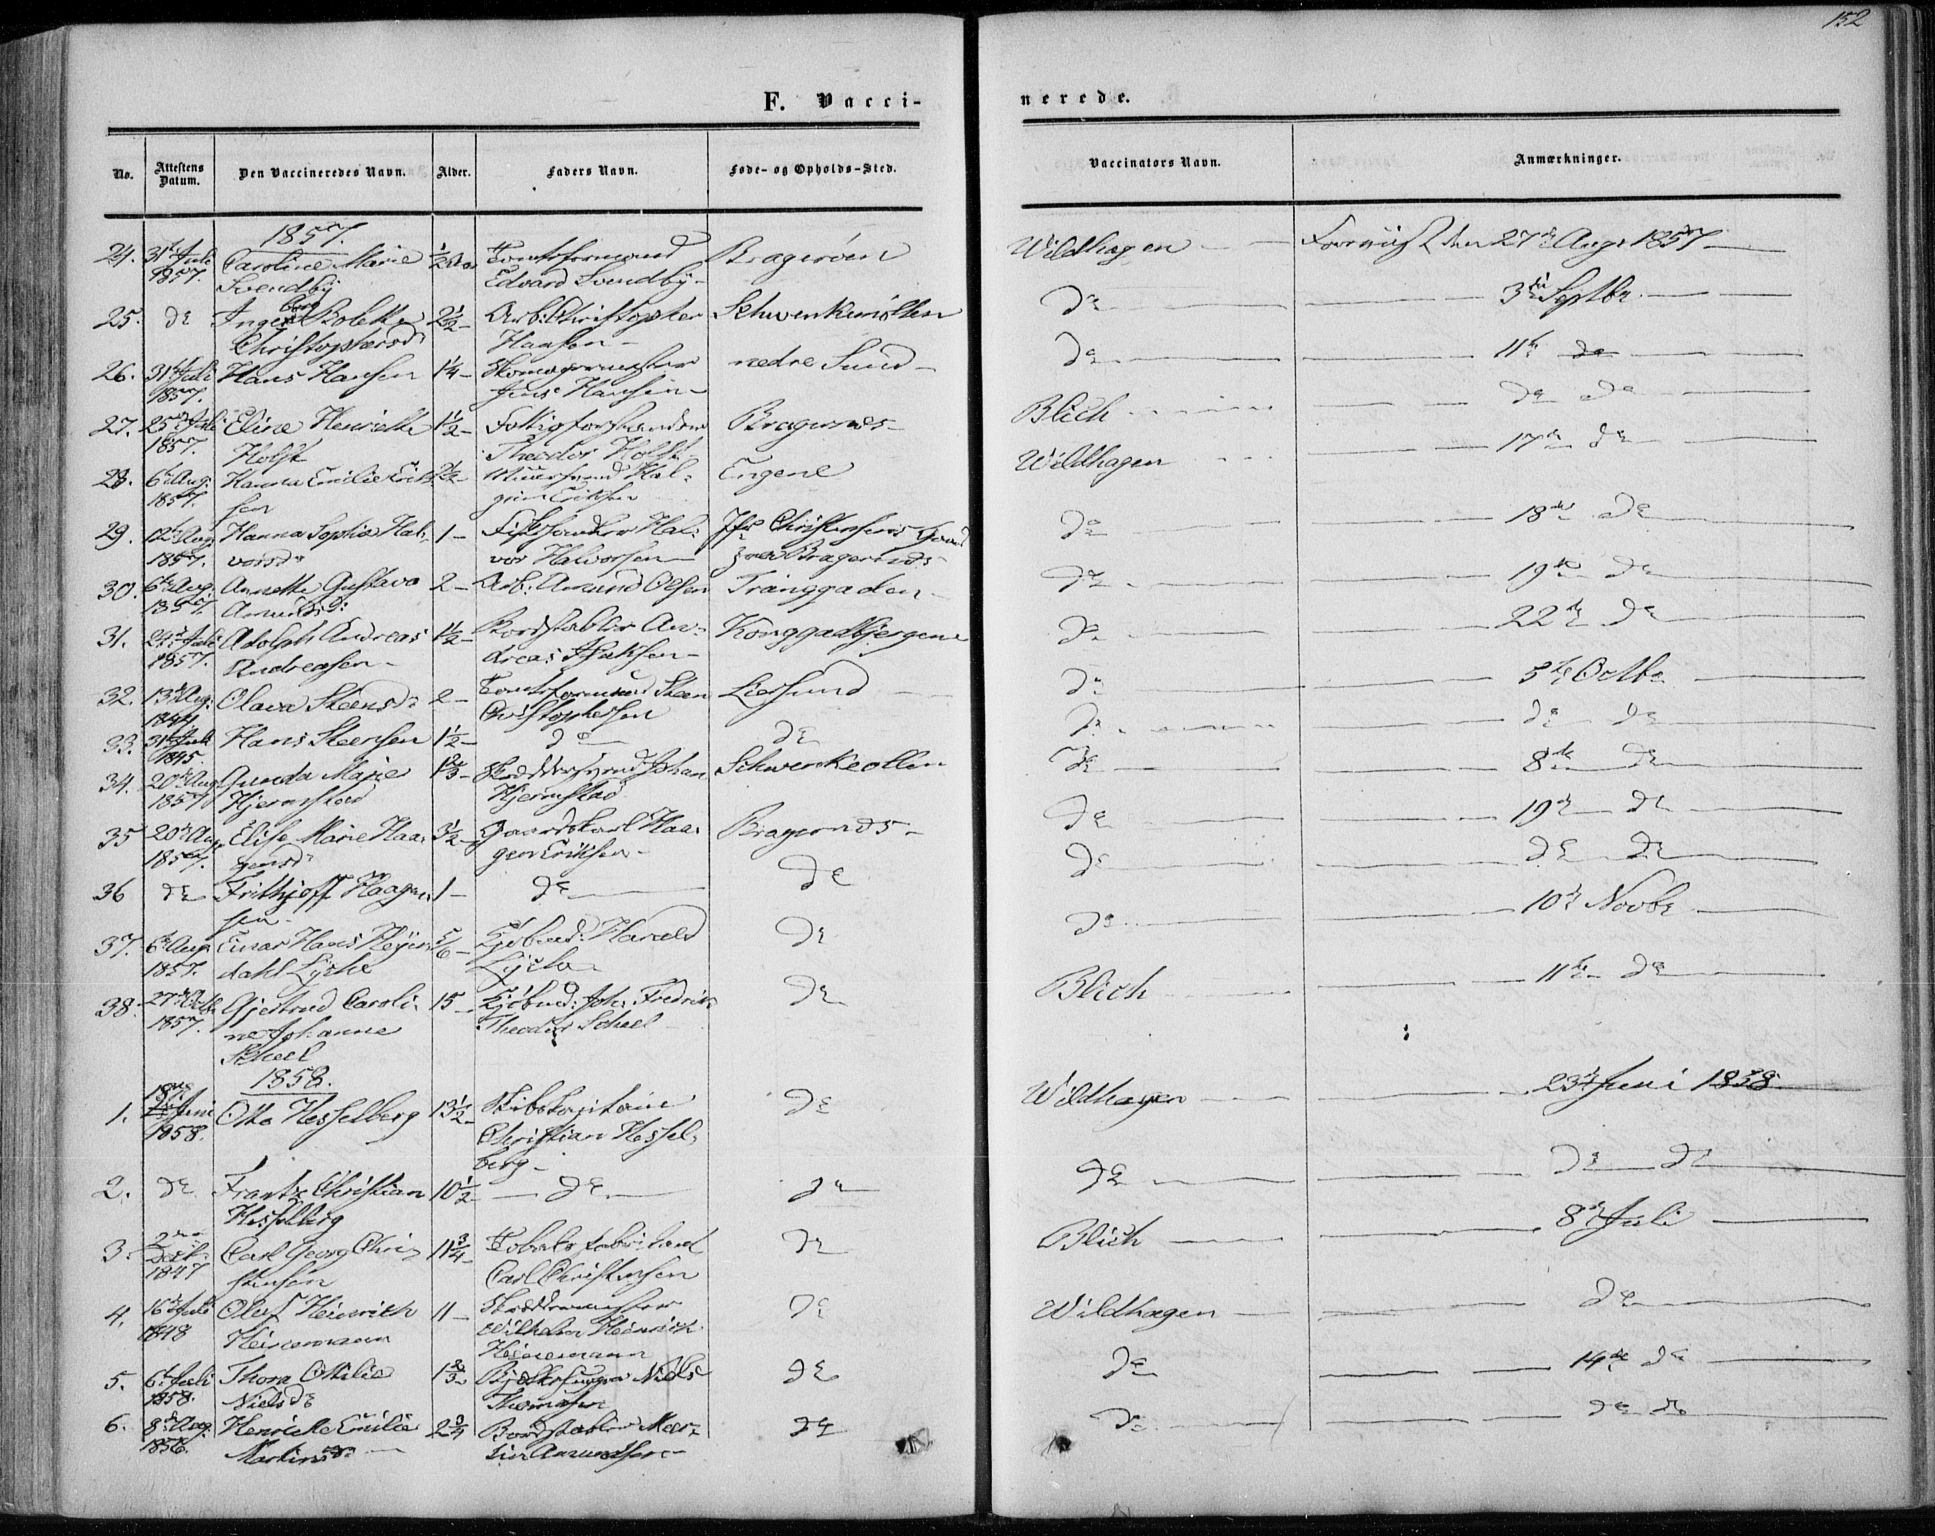 152
F. Vacci-
nerede.
No. Attestens Datum. Den Vaccineredes Navn. Alder. Faders Navn. Føde- og Opholds-Sted.
Vaccinators Navn. Anmærkninger.
1857.
24. 31te Juli Caroline Marie 1/2 Bragerøen
1857. Svendby Edvard Svendby
25. do Inger Bolette 2 1/2 Arb: Christopher Schwenkeniollen
berg
Christophersd: Hansen
26. 31te Juli Hans Hansen 1 1/4 Skomagermester nedre Sund
1857. Jens Hansen
27. 25de Juli Eline Henriette 1 1/2 Fattigforstander Bragernæs
1857. Holst Theodor Holst
28. 6te Aug: Hanna Emilie Erik- Muursvend Hal- Engene
1857. sen Eriksen
29. 12te Aug Hanna Sophie Hal- 1 Hal- Christensens
1857. vorsd: vor Halvorsen Bragernæs
30. 6te Aug: Annette Gustava 2 Arb: Amund Olsen Tranggaden
1857. Amunds:
31. 24de Juli Adolph Andreas 1 1/2 Bordstabler An- Konggadbjergene
1857. Andreasen dreas Isaksen
32. 13de Aug: Olava Steensd: 2 Tomtsformand Steen Liersund
Christophersen
33. 31te Juli Hans Steensen 1 1/2 do do
1845.
34. 20de Aug Gunda Marie 1 2/3 Skræddersvend Johan Schwenkeollen
1857 Hjermstad Hjermstad
35 20de Aug Elise Marie Haa- 3 1/2 Gaardskarl Haa- Bragernæs
1857. gensd: gen Eriksen
36 do Frithjoff Haagen- 1 do do
sen
37. 6te Aug Einar Hans Høyer- 5/6 Kjøbmd: Harald do
1857. dahl Lyche Lyche
38. 27de Gjertrud Caroli- 15 Kjøbmd: Joh: Fredrik do
1857. ne Johanne Theodor Scheel
Scheel
1858.
1. Juni Otto Hesselberg 13 1/2 Skibskapitaine do
1858. Christian Hessel-
berg
2. do Frantz Christian 10 1/2 do do
Hesselberg
3. 2den Carl Georg Chri- 11 3/4 Tobaksfabrikant do
1847 stensen Carl Christensen
4. 16de Juli Oluf Heinrich 11 Skræddermester do
1848 Heinemann Wilhelm Heinrich
Heinemann
5. 6te Juli Thora Otilie 1 2/3 Niels do
1858. Nielsd: Thomasen
6. 8de Aug: Henriette Emilie 2 3/4 Bordstabler Mar- do
1856. Martinsd: tin Amundsen
Wildhagen Forevist den 27de Aug: 1857
do 3die Septbr.
do 11te do
Blich do do
Wildhagen 17de do
do 18de do
do 19de do
do 22de do
do 5te Octbr
do do do
do 8de do
do 19de do
do do do
do 10de Novbr
Blich 11te do
Wildhagen 23de Juni 1858
do do do
Blich 8de Juli
Wildhagen do
do 14de do
do do do